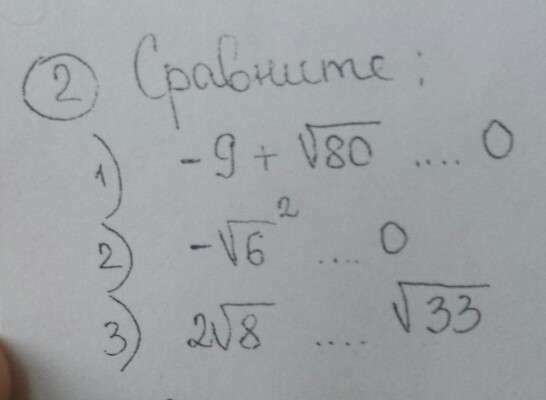 2 Сравните:
1) -9 + √80 .... 0
2) -√6² .... 0
3) 2√8 .... √33